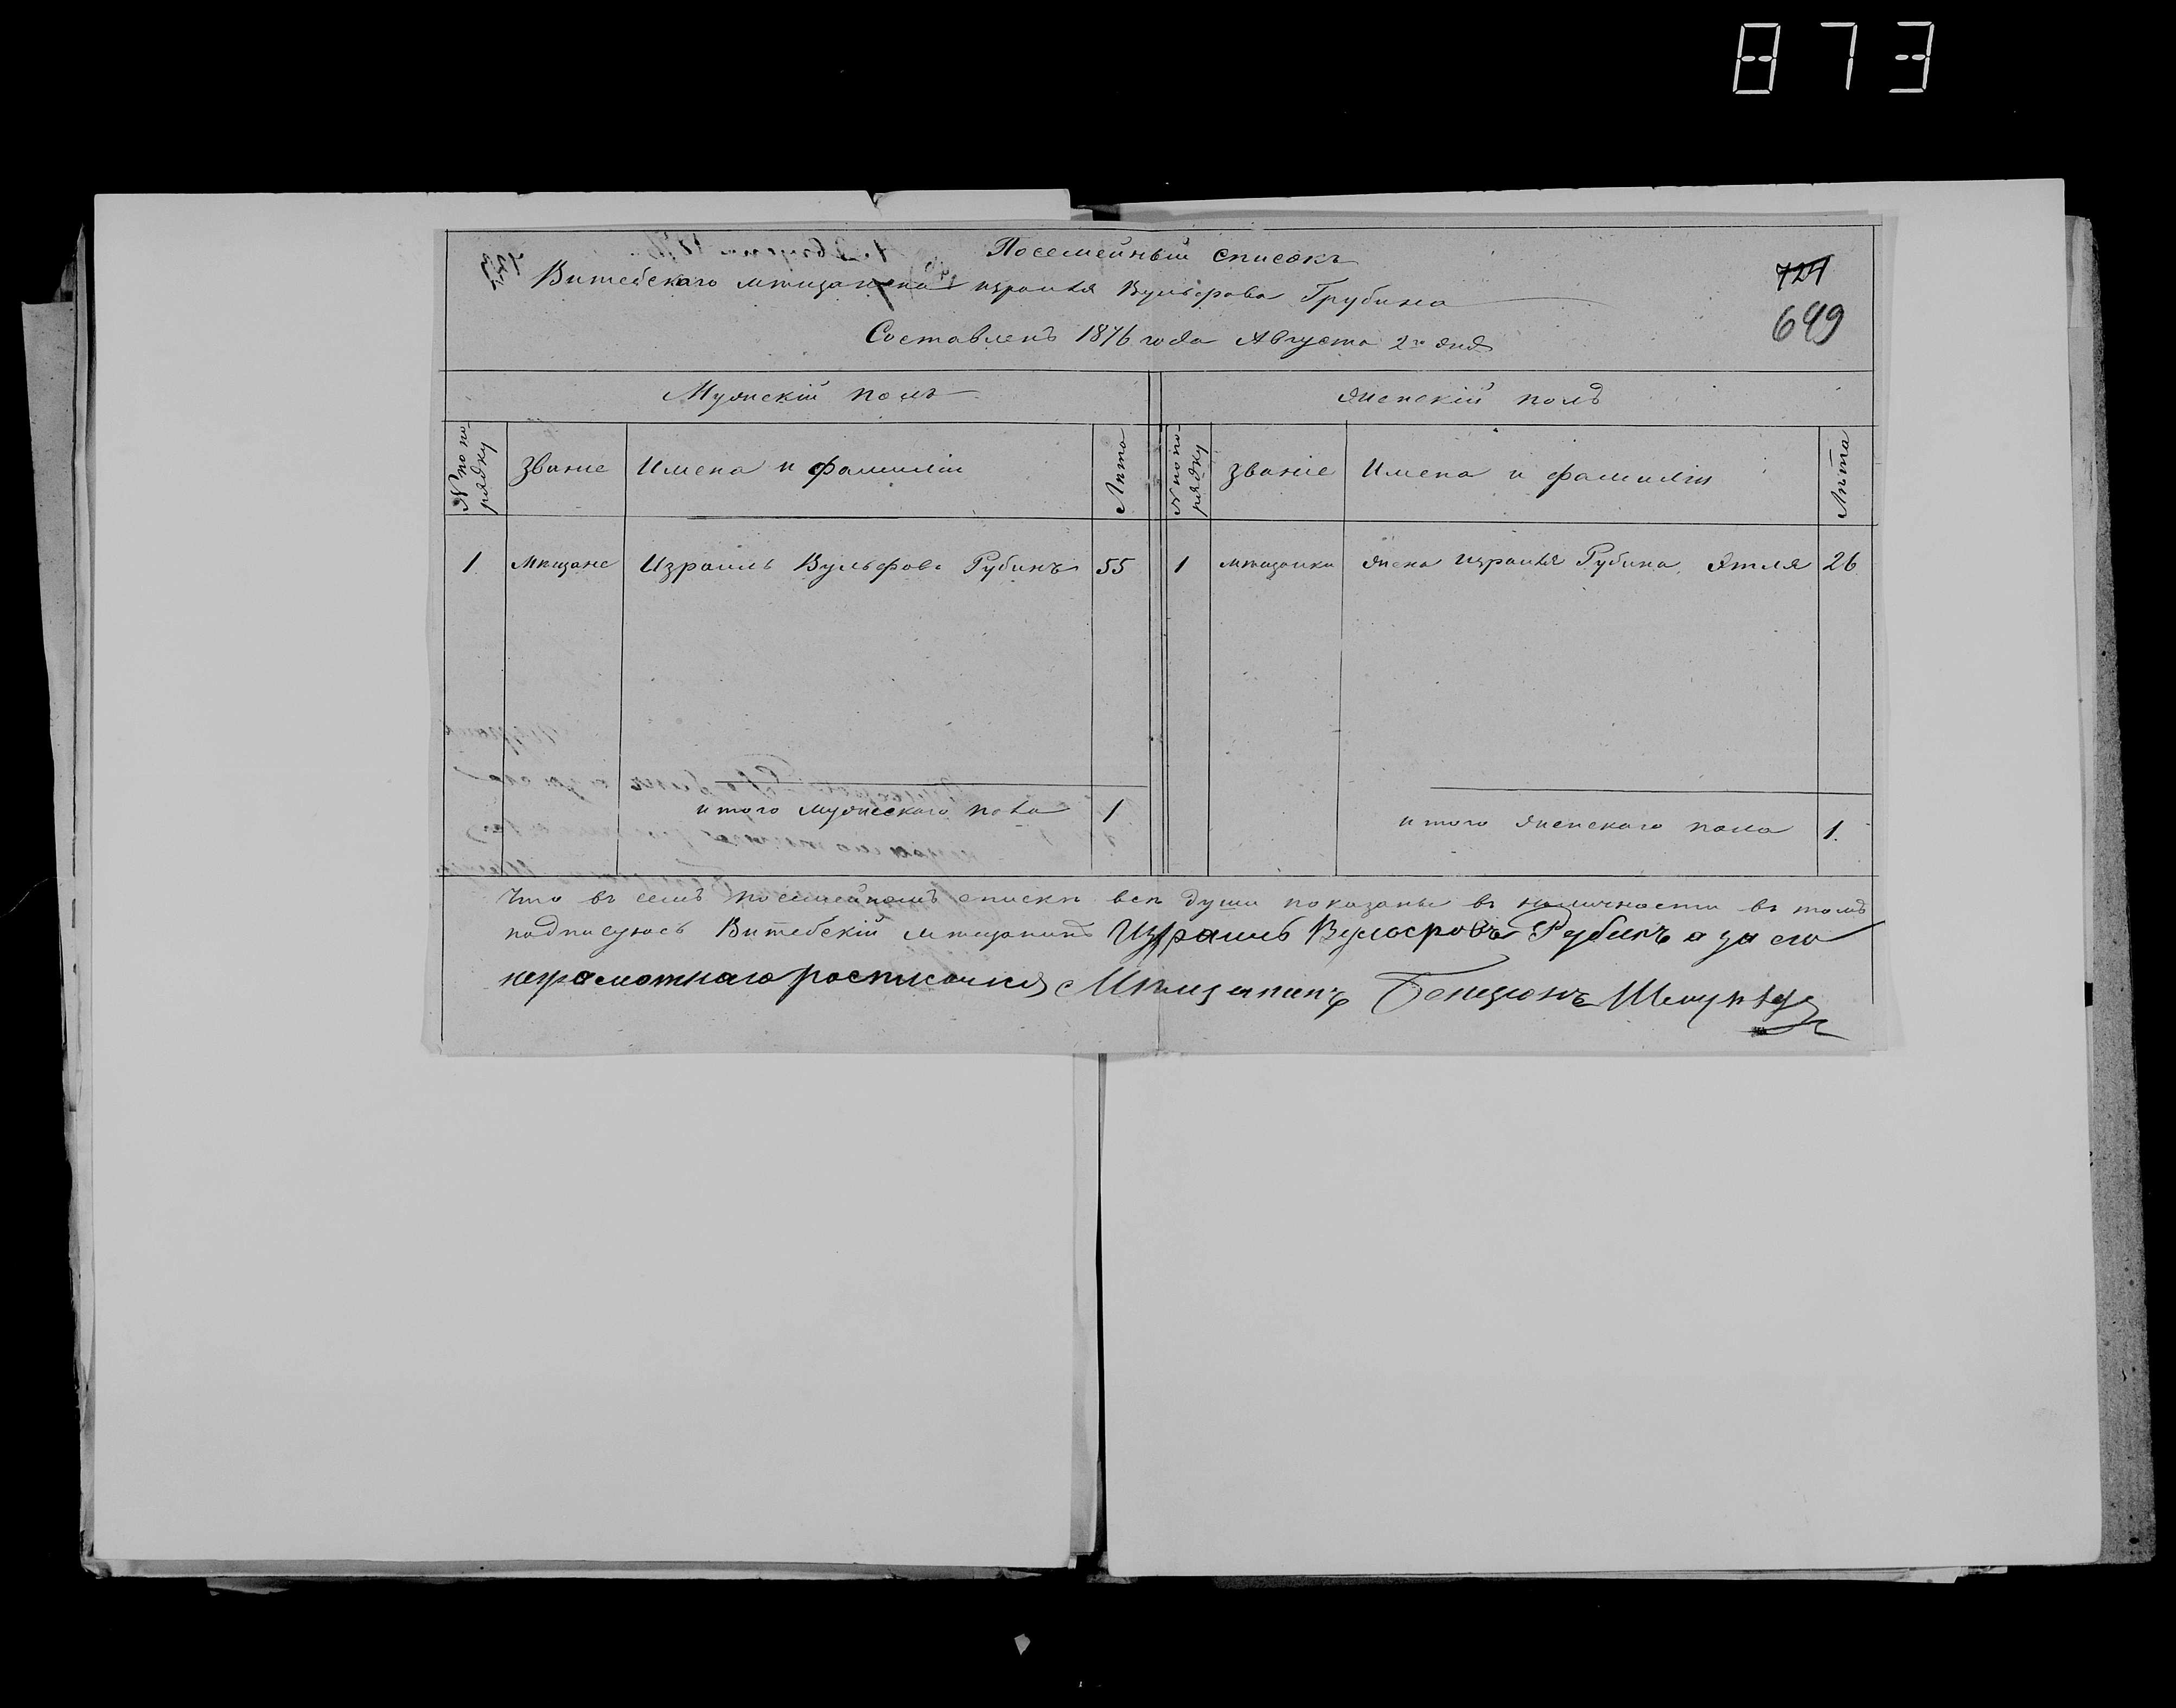 873
Посемейный списокъ
Витебскаго мѣщанина Израиля Вульфова Грубина
724
649
Составленъ 1876 года Августа 2го дня
Мужескій полъ
Женскій полъ
№ по порядку
Званіе
Имена и фамиліи
Лѣта
№ по порядку
Званіе
Имена и фамиліи
Лѣта
1 Мѣщане Израиль Вульфовъ Рубинъ 55 1 мѣщанки Жена Израиля Рубина Этля 26
итого мужескаго пола 1
итого женскаго пола 1.
Что въ семъ посемейномъ спискѣ всѣ души показаны въ наличности въ томъ
подписуюсь Витебскій мѣщанинъ Израиль Вульфовъ Рубинъ а за его
неграмотнаго росписался Мѣщанинъ Бенціонъ